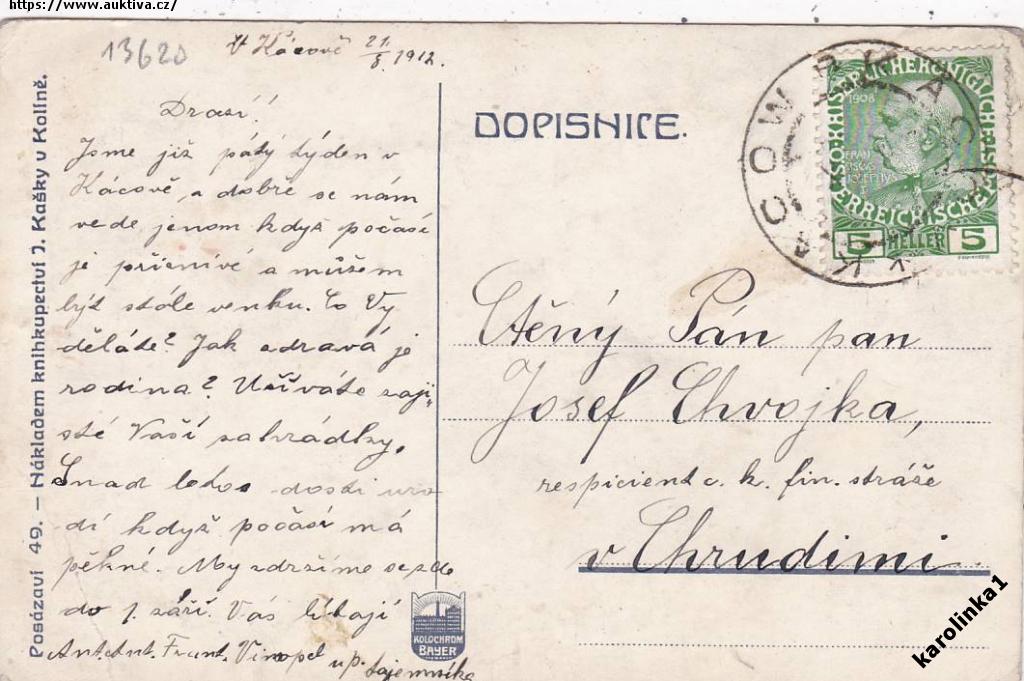 https://www.auktiva.cz/
13620
V Kácově 21/8 1912.
Drazí!
Jsme již pátý týden v
Kácově, a dobře se nám
vede jenom když počasí
je příznivé a můžem
být stále venku. Co Vy
děláte? Jak zdravá je
rodina? Užíváte zaji„
sté Vaší zahrádky.
Snad letos dosti uro
dí když počasí má
pěkné. My zdržíme se zde
do 1. září. Vás líbají
Ant. Frant. Vinopal u p. tajemníka
Posázaví 49. — Nákladem knihkupectví J. Kašky v Kolíně.
DOPISNICE.
KAISERLICHE KÖNIGLICHE
1908
ÖSTERREICHISCHE
5 HELLER 5
KÁCOW
Ctěný Pán pan
Josef Chvojka,
respicient c. k. fin. stráže
v Chrudimi
KOLOCHROM
BAYER
karolinka1